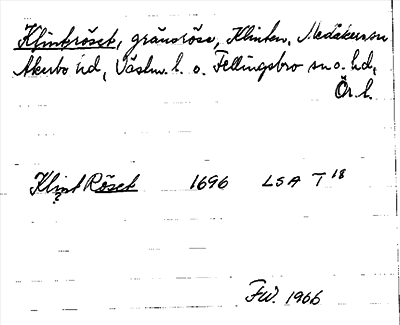 Klinkröset, gränsröse, Klinten, Medåkers sn
Åkerbo hd, Västm. l. o. Fellingsbro sn o. hd,
Ör. l.
Klint Röset 1696 LSA T 18
FW. 1966